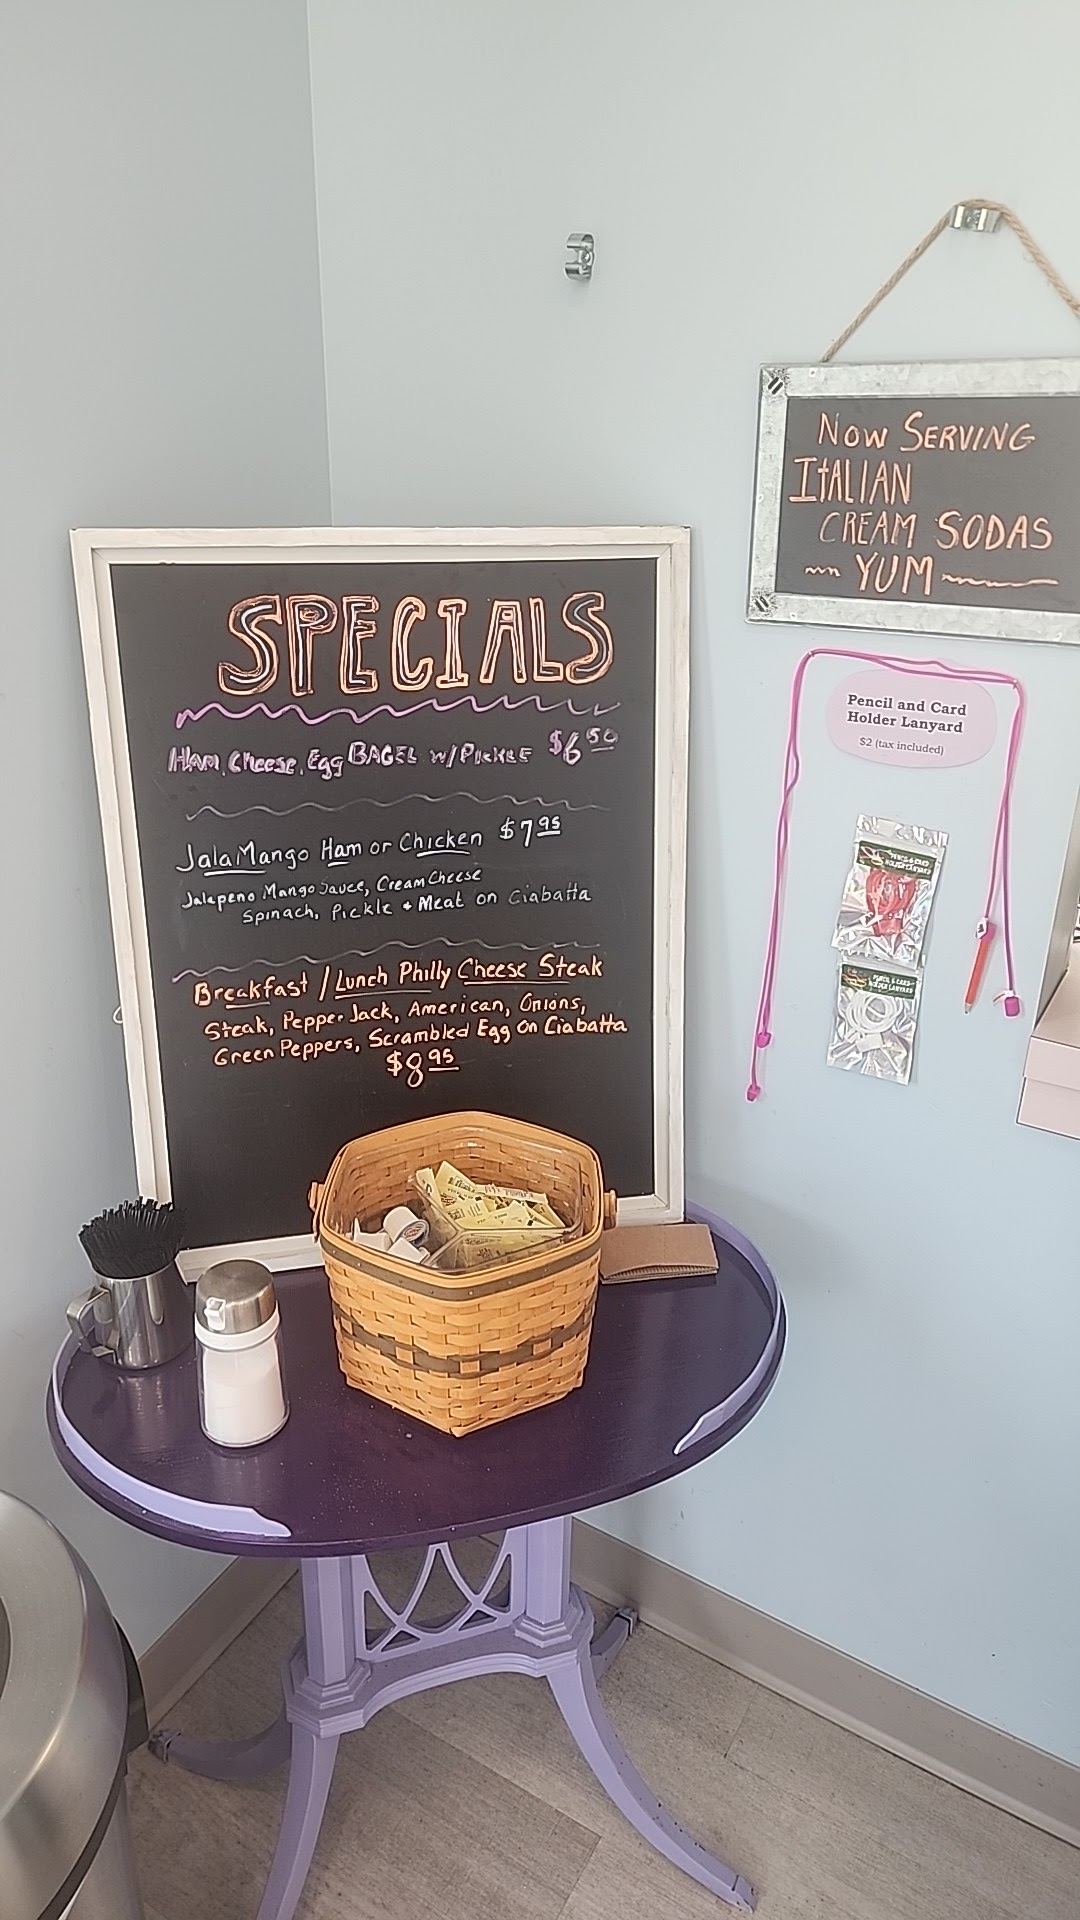 SPECIALS
HAM, Cheese, Egg BAGEL w/PICKLE $6 50
JalaMango Ham or Chicken $7 95
Jalapeno Mango Sauce, Cream Cheese
Spinach, Pickle + Meat on Ciabatta
Breakfast / Lunch Philly Cheese Steak
Steak, Pepper Jack, American, Onions,
Green Peppers, Scrambled Egg on Ciabatta
$8 95
NOW SERVING
ITALIAN
CREAM SODAS
YUM
Pencil and Card
Holder Lanyard
$2 (tax included)
PENCIL & CARD
HOLDER LANYARD
PENCIL & CARD
HOLDER LANYARD